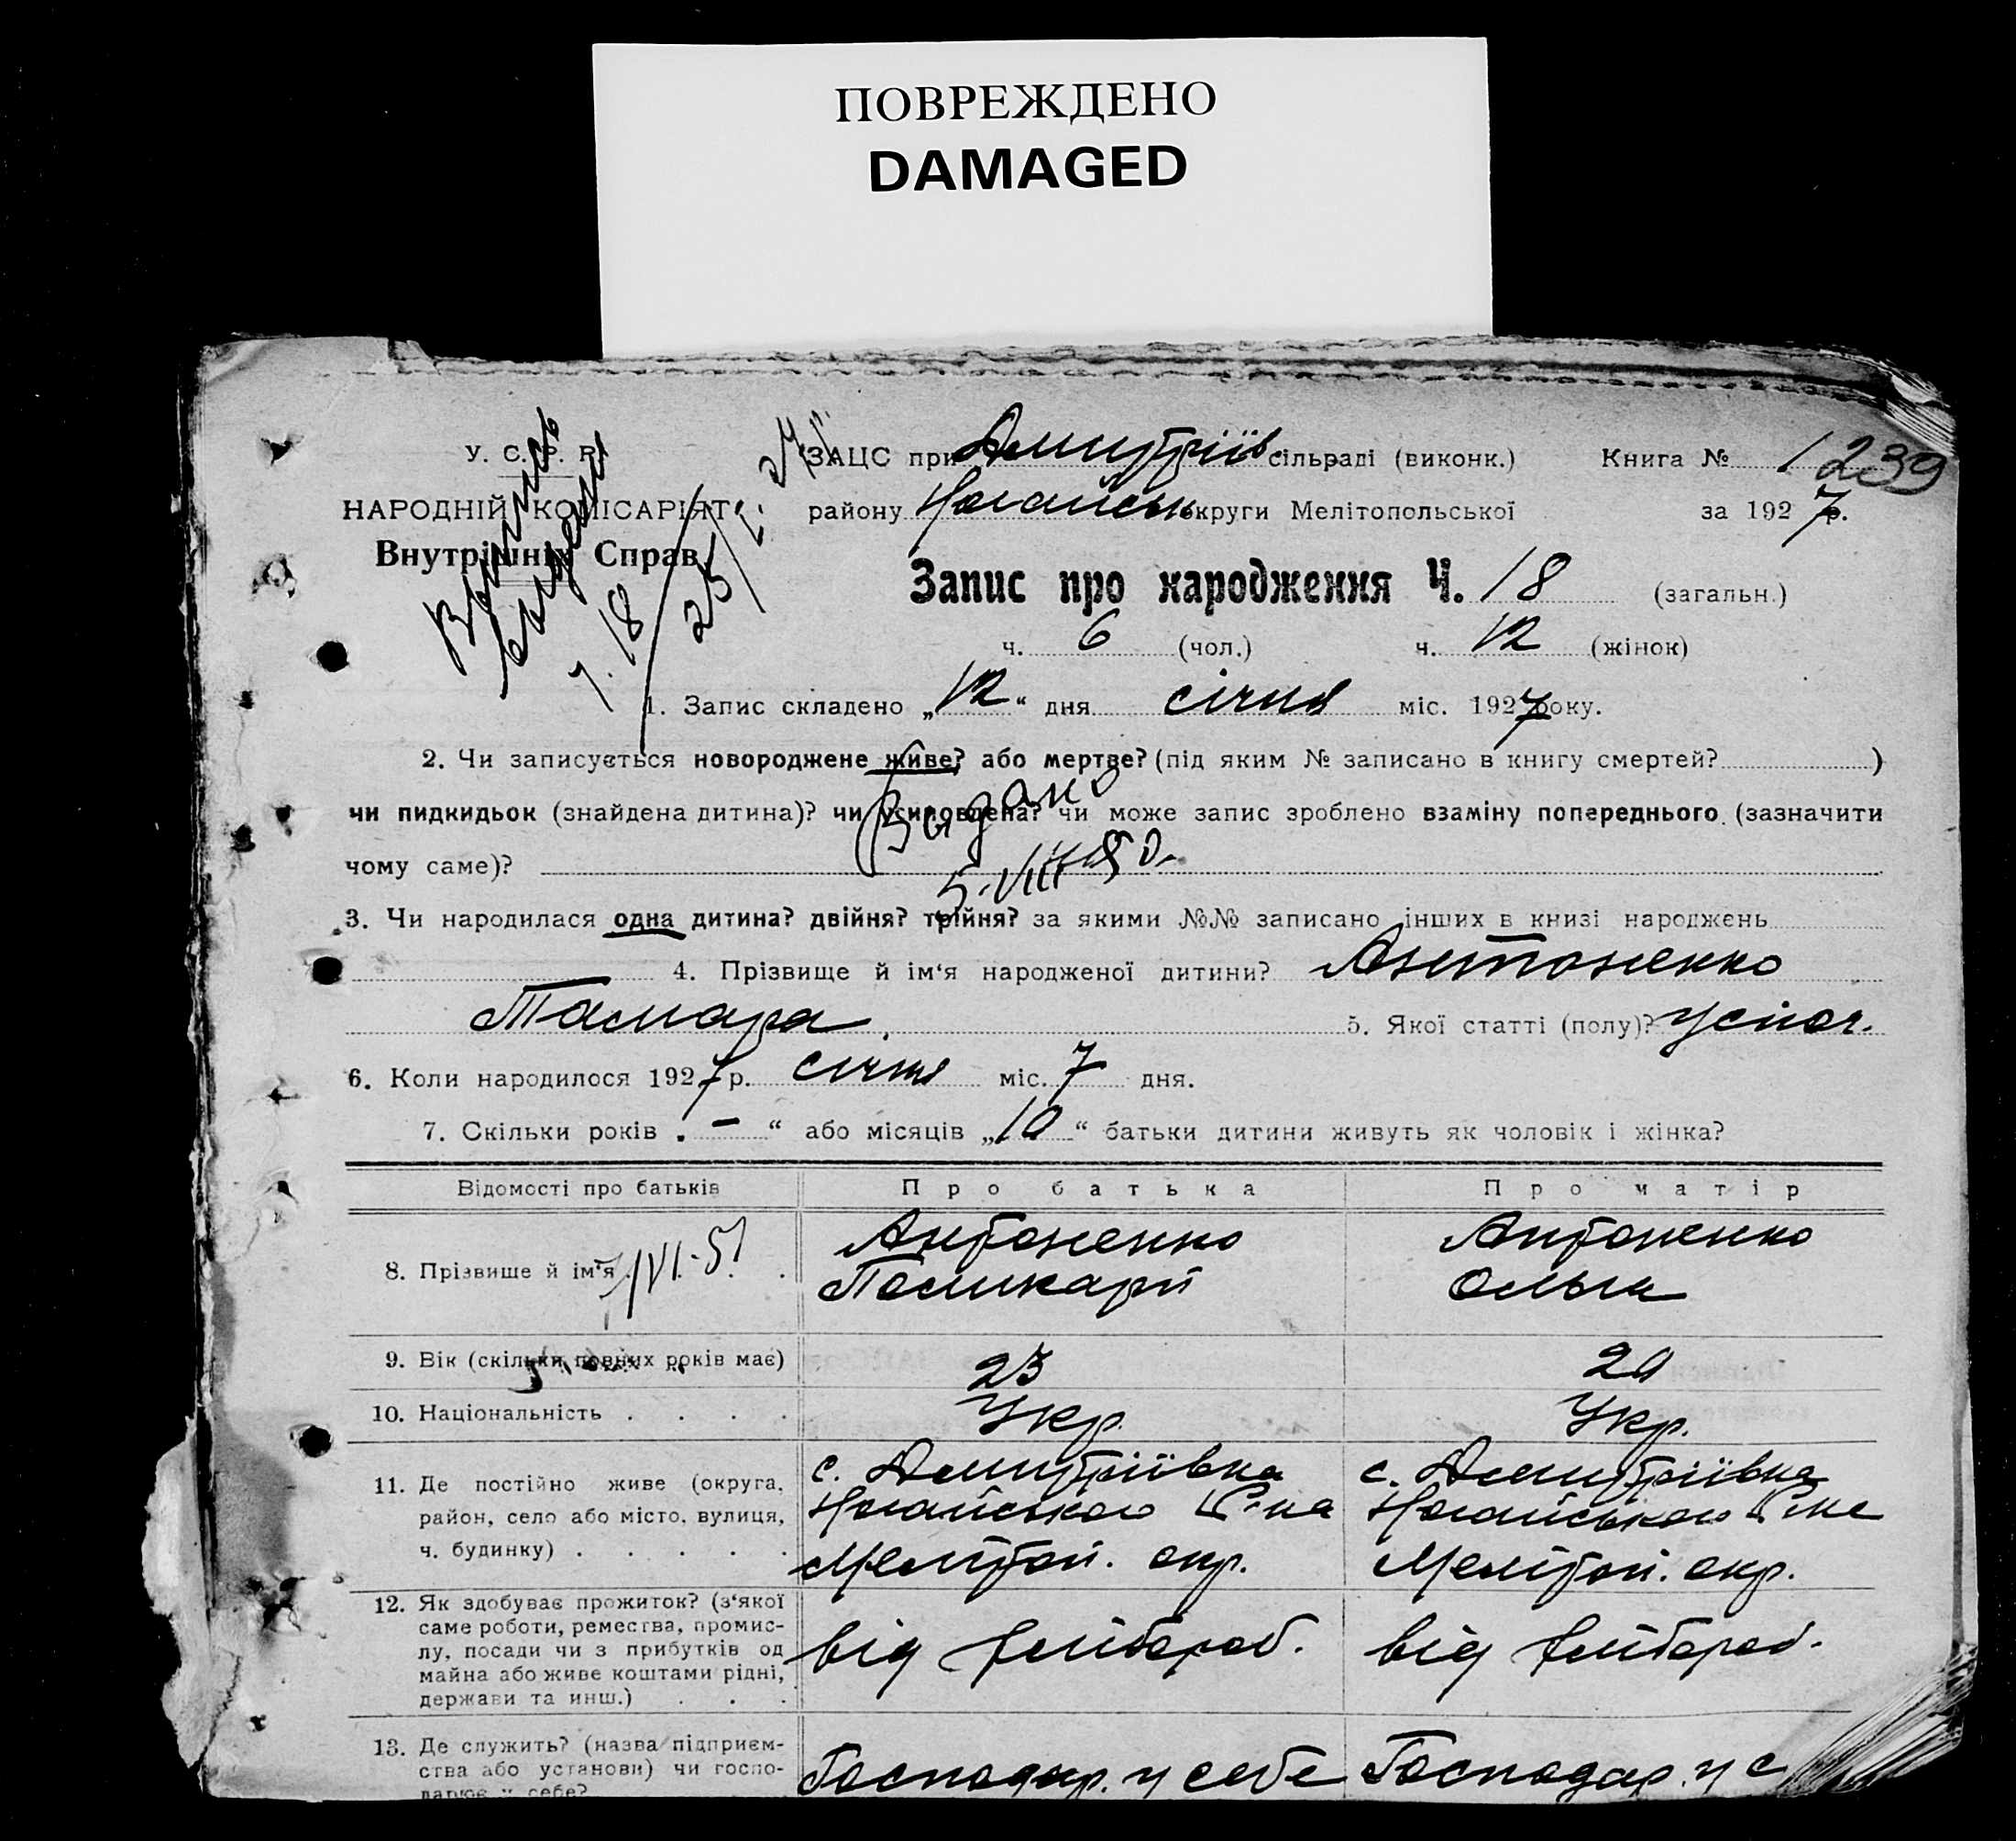 ПОВРЕЖДЕНО
DAMAGED
У. С. Р. Р.
НАРОДНІЙ КОМІСАРІЯТ
Внутрішніх Справ
ч. 18
25/
ЗАЦС при Дмитріїв сільраді (виконк.) Книга № 1 239
району Ногайськ округи Мелітопольської за 1927 р.
Запис про народження Ч. 18 (загальн.)
ч. 6 (чол.) ч. 12 (жінок)
1. Запис складено „12“ дня січня міс. 1927 року.
2. Чи записується новороджене живе? або мертве? (під яким № записано в книгу смертей? )
чи пидкидьок (знайдена дитина)? чи усиновлена? чи може запис зроблено взаміну попереднього (зазначити
Видано
чому саме)?
5.VIII-50.
3. Чи народилася одна дитина? двійня? трійня? за якими №№ записано інших в книзі народжень
4. Прізвище й ім‘я народженої дитини? Антоненко
Тамара. 5. Якої статті (полу)?
6. Коли народилося 1927 р. січня міс. 7 дня.
7. Скільки років „ – “ або місяців „10“ батьки дитини живуть як чоловік і жінка?
Відомості про батьків Про батька Про матір
8. Прізвище й ім‘я Антоненко Антоненко
Поликарп Ольга
7/VI-51
9. Вік (скільки повних років має) 23 20
10. Національність Укр. Укр.
11. Де постійно живе (округа, район, село або місто, вулиця, ч. будинку)
с. Дмитріївка с. Дмитріївка
Ногайського Р-на Ногайського Р-на
Мелітоп. окр. Мелітоп. окр.
12. Як здобуває прожиток? (з‘якої саме роботи, ремества, промислу, посади чи з прибутків од майна або живе коштами рідні, держави та инш.)
від хлібороб. від хлібороб.
13. Де служить? (назва підприємства або установи) чи господарює у себе?
Господар. у себе Господар. у с